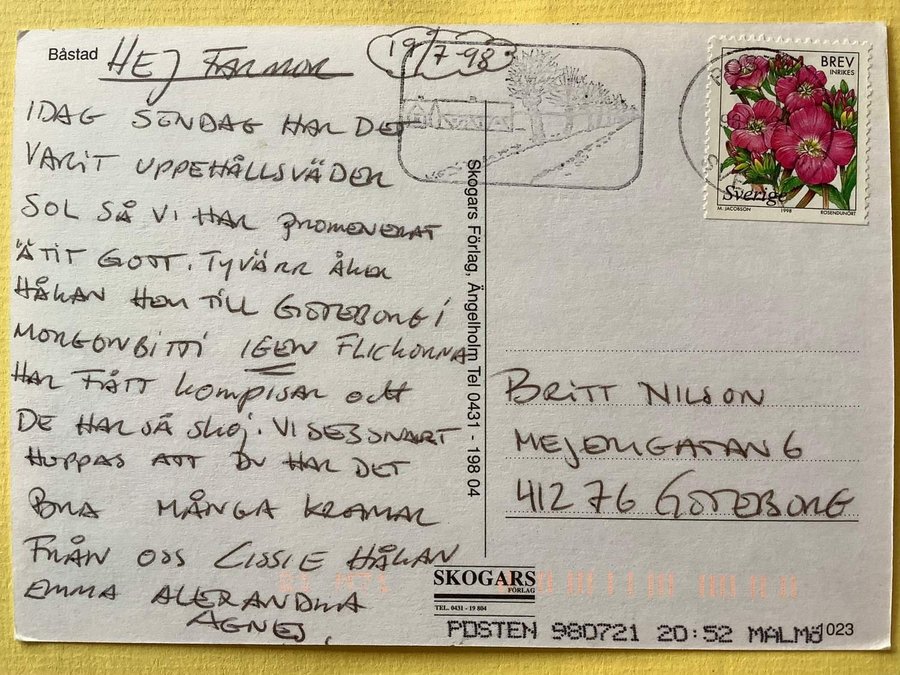 Båstad
HEJ FARMOR
19/7-98
IDAG SÖNDAG HAR DET
VARIT UPPEHÅLLSVÄDER
SOL SÅ VI HAR PROMENERAT
ÄTIT GOTT. TYVÄRR ÅKER
HÅKAN HEM TILL GÖTEBORG I
MORGONBITTI IGEN FLICKORNA
HAR FÅTT KOMPISAR OCH
DE HAR SÅ SKOJ. VI SES SNART
HOPPAS ATT DU HAR DET
BRA MÅNGA KRAMAR
FRÅN OSS CISSIE HÅKAN
EMMA ALEXANDRA
AGNES.
Skogars Förlag, Ängelholm Tel 0431 - 198 04
BREV
INRIKES
Sverige
M. JACOBSON 1998 ROSENDUNÖRT
BRITT NILSON
MEJERIGATAN 6
412 76 GÖTEBORG
SKOGARS
FÖRLAG
TEL. 0431 - 19 804
POSTEN 980721 20:52 MALMö
1023